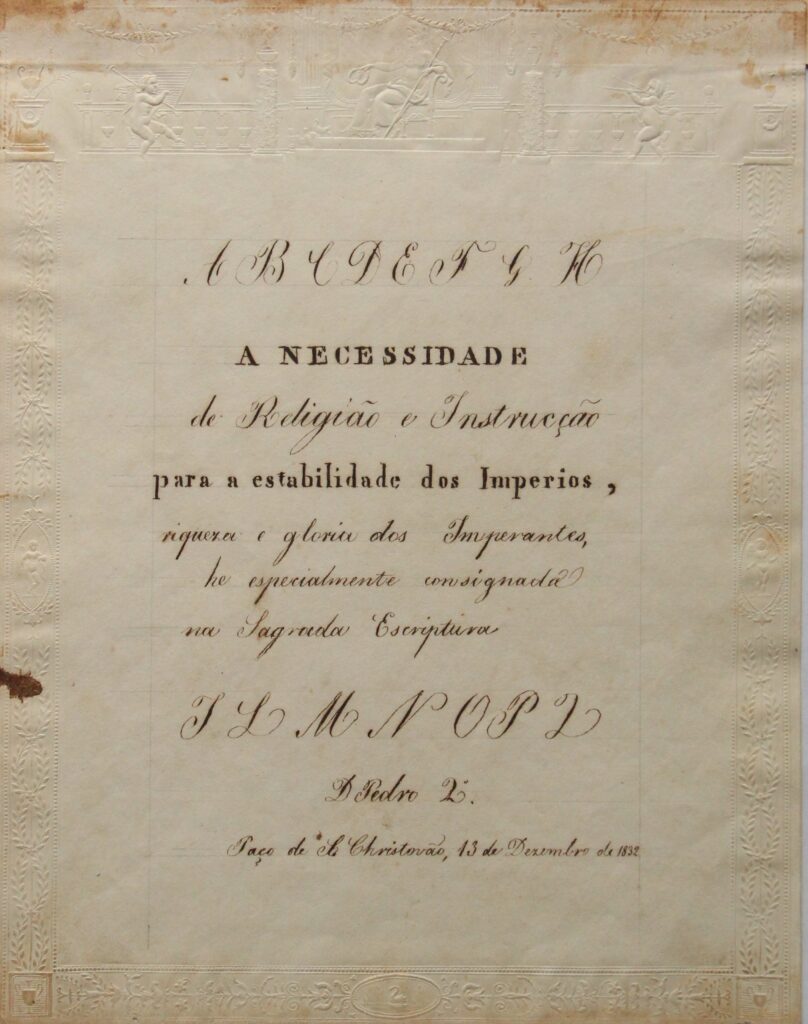 A B C D E F G H
A NECESSIDADE
de Religião e Instrucção
para a estabilidade dos Imperios,
riqueza e gloria dos Imperantes,
he especialmente consignada
na Sagrada Escriptura
I L M N O P Q
D Pedro 2º.
Paço de S. Christovão, 13 de Dezembro de 1832